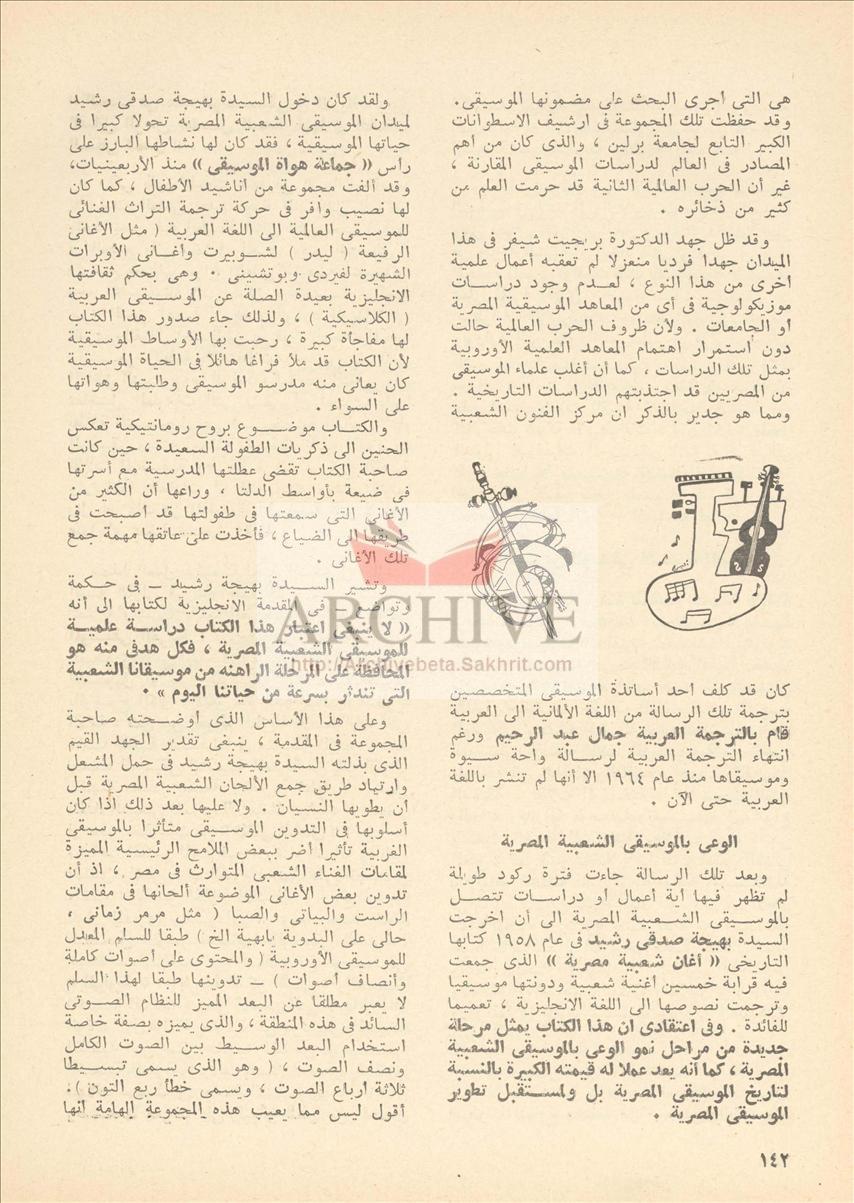 هى التى أجرى البحث على مضمونها الموسيقى.
وقد حفظت تلك المجموعة فى ارشيف الاسطوانات
الكبير التابع لجامعة برلين ، والذى كان من أهم
المصادر فى العالم لدراسات الموسيقى المقارنة ،
غير أن الحرب العالمية الثانية قد حرمت العلم من
كثير من ذخائره .
وقد ظل جهد الدكتورة بريجيت شيفر فى هذا
الميدان جهدا فرديا منعزلا لم تعقبه أعمال علمية
أخرى من هذا النوع ، لعدم وجود دراسات
موزيكولوجية فى أى من المعاهد الموسيقية المصرية
أو الجامعات . ولأن ظروف الحرب العالمية حالت
دون استمرار اهتمام المعاهد العلمية الأوروبية
بمثل تلك الدراسات ، كما أن أغلب علماء الموسيقى
من المصريين قد اجتذبتهم الدراسات التاريخية .
ومما هو جدير بالذكر ان مركز الفنون الشعبية
كان قد كلف أحد أساتذة الموسيقى المتخصصين
بترجمة تلك الرسالة من اللغة الألمانية الى العربية
قام بالترجمة العربية جمال عبد الرحيم ورغم
انتهاء الترجمة العربية لرسالة واحة سيوة
وموسيقاها منذ عام ١٩٦٤ الا أنها لم تنشر باللغة
العربية حتى الآن .
الوعى بالموسيقى الشعبية المصرية
وبعد تلك الرسالة جاءت فترة ركود طويلة
لم تظهر فيها أية أعمال أو دراسات تتصل
بالموسيقى الشعبية المصرية الى أن أخرجت
السيدة بهيجة صدقى رشيد فى عام ١٩٥٨ كتابها
التاريخى « أغان شعبية مصرية » الذى جمعت
فيه قرابة خمسين أغنية شعبية ودونتها موسيقيا
وترجمت نصوصها الى اللغة الانجليزية ، تعميما
للفائدة . وفى اعتقادى ان هذا الكتاب يمثل مرحلة
جديدة من مراحل نمو الوعى بالموسيقى الشعبية
المصرية ، كما أنه يعد عملا له قيمته الكبيرة بالنسبة
لتاريخ الموسيقى المصرية بل ولمستقبل تطوير
الموسيقى المصرية .
ولقد كان دخول السيدة بهيجة صدقى رشيد
لميدان الموسيقى الشعبية المصرية تحولا كبيرا فى
حياتها الموسيقية ، فقد كان لها نشاطها البارز على
رأس « جماعة هواة الموسيقى » منذ الأربعينيات،
وقد ألفت مجموعة من أناشيد الأطفال ، كما كان
لها نصيب وافر فى حركة ترجمة التراث الغنائى
للموسيقى العالمية الى اللغة العربية ( مثل الأغانى
الرفيعة ( ليدر ) لشوبيرت وأغانى الأوبرات
الشهيرة لفيردى وبوتشينى . وهى بحكم ثقافتها
الانجليزية بعيدة الصلة عن الموسيقى العربية
( الكلاسيكية ) ، ولذلك جاء صدور هذا الكتاب
لها مفاجأة كبيرة ، رحبت بها الأوساط الموسيقية
لأن الكتاب قد ملأ فراغا هائلا فى الحياة الموسيقية
كان يعانى منه مدرسو الموسيقى وطلبتها وهواتها
على السواء .
والكتاب موضوع بروح رومانتيكية تعكس
الحنين الى ذكريات الطفولة السعيدة ، حين كانت
صاحبة الكتاب تقضى عطلتها المدرسية مع أسرتها
فى ضيعة بأواسط الدلتا ، وراعها أن الكثير من
الأغانى التى سمعتها فى طفولتها قد أصبحت فى
طريقها الى الضياع ، فأخذت على عاتقها مهمة جمع
تلك الأغانى .
وتشير السيدة بهيجة رشيد – فى حكمة
وتواضع – فى المقدمة الانجليزية لكتابها الى أنه
« لا ينبغى اعتبار هذا الكتاب دراسة علمية
للموسيقى الشعبية المصرية ، فكل هدفى منه هو
المحافظة على المرحلة الراهنه من موسيقانا الشعبية
التى تندثر بسرعة من حياتنا اليوم » .
وعلى هذا الأساس الذى أوضحته صاحبة
المجموعة فى المقدمة ، ينبغى تقدير الجهد القيم
الذى بذلته السيدة بهيجة رشيد فى حمل المشعل
وارتياد طريق جمع الألحان الشعبية المصرية قبل
أن يطويها النسيان . ولا عليها بعد ذلك اذا كان
أسلوبها فى التدوين الموسيقى متأثرا بالموسيقى
الغربية تأثيرا أضر ببعض الملامح الرئيسية المميزة
لمقامات الغناء الشعبى المتوارث فى مصر ، اذ أن
تدوين بعض الأغانى الموضوعة ألحانها فى مقامات
الراست والبياتى والصبا ( مثل مرمر زمانى ،
حالى على البدوية يابهية الخ ) طبقا للسلم المعدل
للموسيقى الأوروبية ( والمحتوى على أصوات كاملة
وأنصاف أصوات ) – تدوينها طبقا لهذا السلم
لا يعبر مطلقا عن البعد المميز للنظام الصوتى
السائد فى هذه المنطقة ، والذى يميزه بصفة خاصة
استخدام البعد الوسيط بين الصوت الكامل
ونصف الصوت ، ( وهو الذى يسمى تبسيطا
ثلاثة أرباع الصوت ، ويسمى خطأ ربع التون ).
أقول ليس مما يعيب هذه المجموعة الهامة أنها
١٤٢
ARCHIVE
http://Archivebeta.Sakhrit.com